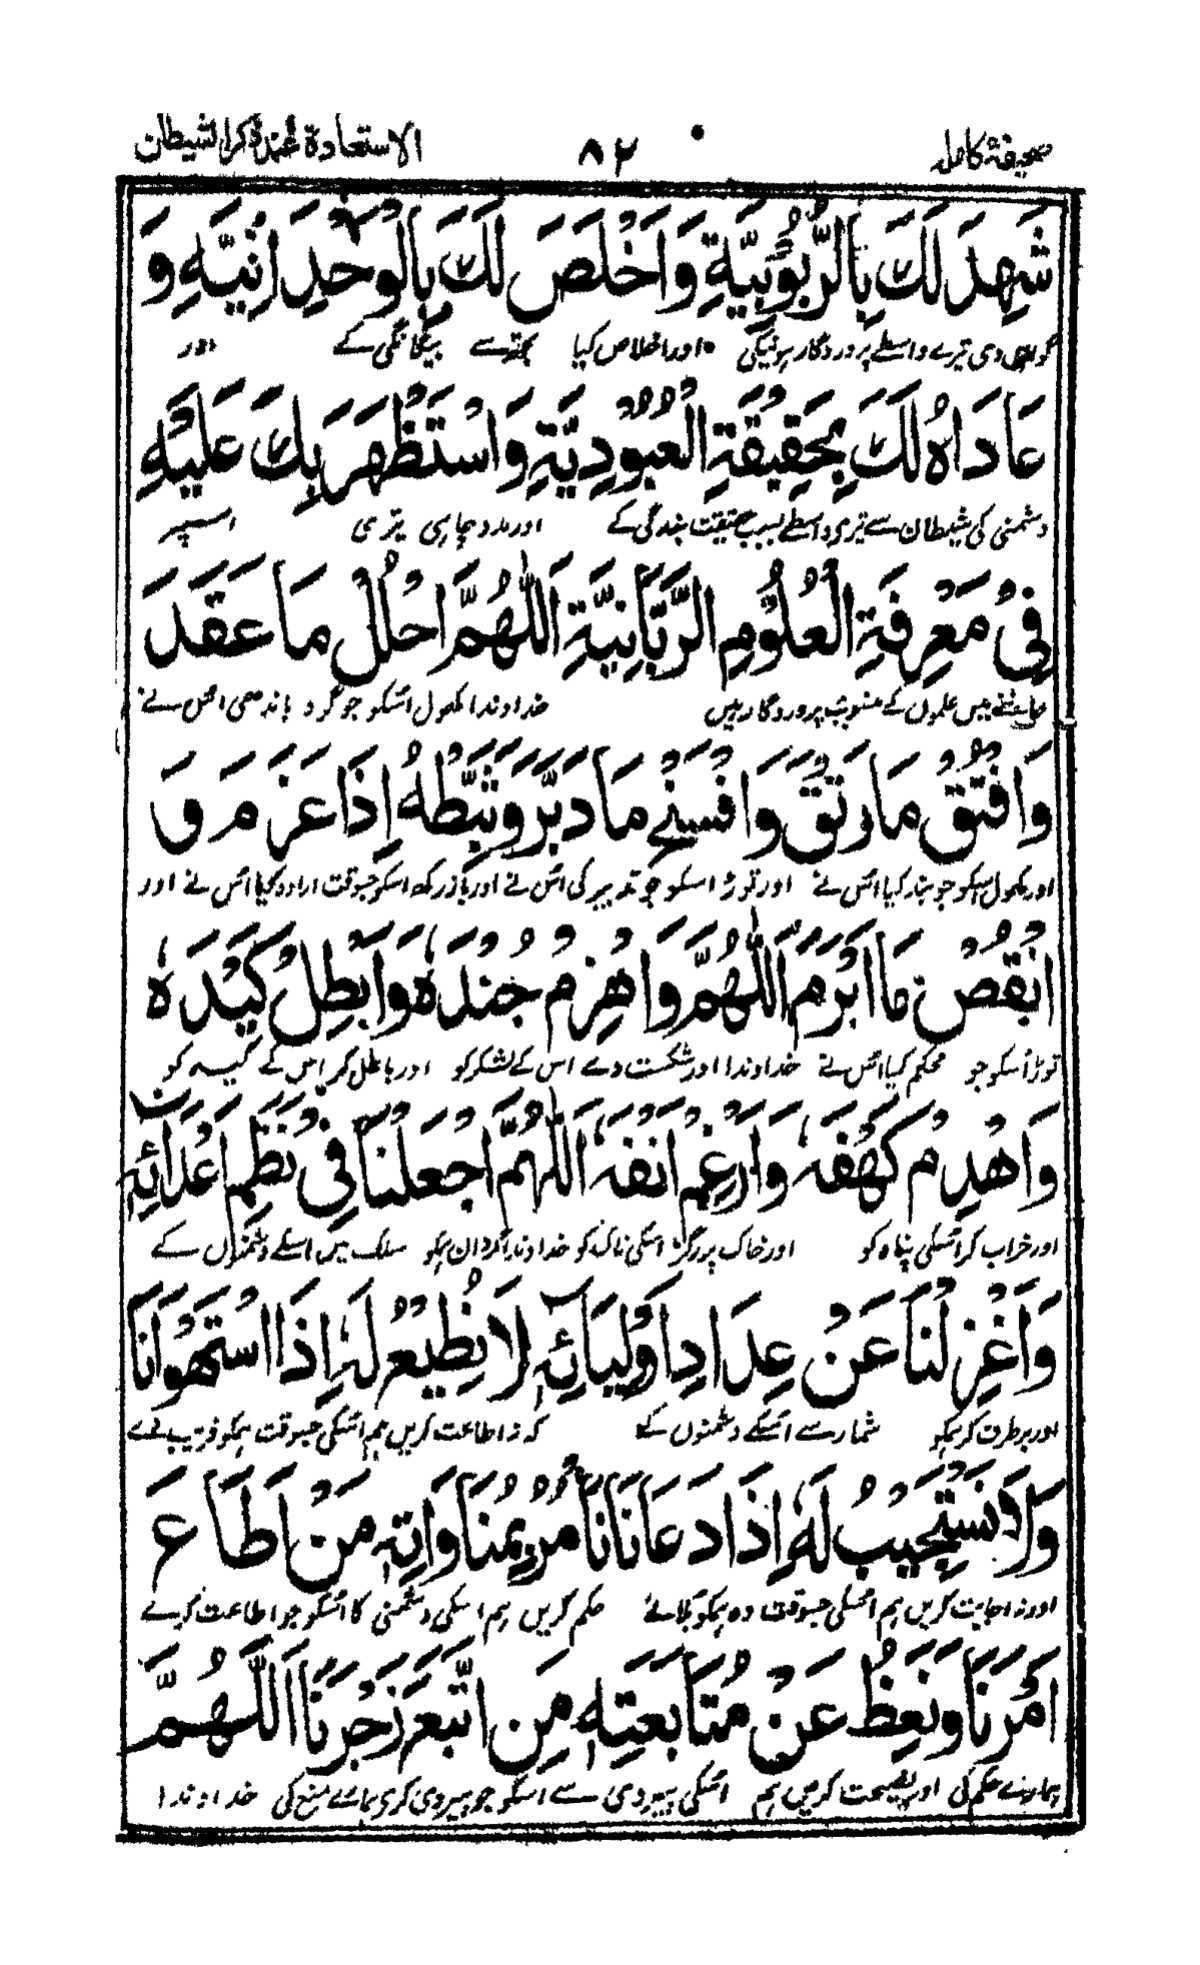 صحیفۂ کاملہ ۸۲ الاستعاذة عند ذكر الشيطان
شَهِدَ لَكَ بِالرُّبُوبِيَّةِ وَاَخْلَصَ لَكَ بِالْوَحْدَانِيَّةِ وَ
گواہی دی تیرے واسطے پروردگار ہونیکی اور اخلاص کیا تجھسے یگانگی کے اور
عَادَاهُ لَكَ بِحَقِيقَةِ الْعُبُودِيَّةِ وَاسْتَظْهَرَ بِكَ عَلَيْهِ
دشمنی کی شیطان سے تیری واسطے بسبب حقیقت بندگی کے اور مدد چاہی تیری اسپر
فِي مَعْرِفَةِ الْعُلُومِ الرَّبَّانِيَّةِ اَللّٰهُمَّ احْلُلْ مَا عَقَدَ
جاننے میں علموں کے منسوب پروردگار ہیں خداوندا کھول اسکو جو گرہ باندھی اس نے
وَافْتُقْ مَا رَتَقَ وَافْسَخْ مَا دَبَّرَ وَثَبِّطْهُ اِذَا عَزَمَ وَ
اور کھول اسکو جو بند کیا اس نے اور توڑ اسکو جو تدبیر کی اس نے اور باز رکھ اسکو جسوقت ارادہ کیا اس نے اور
انْقُضْ مَا اَبْرَمَ اَللّٰهُمَّ وَاهْزِمْ جُنْدَهٗ وَاَبْطِلْ كَيْدَهٗ
توڑ اسکو جو محکم کیا اس نے خداوندا اور شکست دے اس کے لشکر کو اور باطل کر اس کے کید کو
وَاهْدِمْ كَهْفَهٗ وَارْغِمْ اَنْفَهٗ اَللّٰهُمَّ اجْعَلْنَا فِي نَظْمِ اَعْدَائِهِ
اور خراب کر اسکی پناہ کو اور خاک پر رگڑ اسکی ناک کو خداوندا گردان ہمکو سلک میں اسکے دشمنوں کے
وَاعْزِلْنَا عَنْ عِدَادِ اَوْلِيَائِهٖ لَا نُطِيعُ لَهٗ اِذَا اسْتَهْوَانَا
اور برطرف کر ہمکو شمار سے اسکے دشمنوں کے کہ نہ اطاعت کریں ہم اسکی جسوقت ہمکو فریب دے
وَلَا نَسْتَجِيبُ لَهٗ اِذَا دَعَانَا نَأْمُرُ بِمُنَاوَاتِهٖ مَنْ اَطَاعَ
اور نہ اجابت کریں ہم اسکی جسوقت وہ ہمکو بلائے حکم کریں ہم اسکی دشمنی کا اسکو جو اطاعت کرے
اَمْرَنَا وَنَعِظُ عَنْ مُتَابَعَتِهٖ مَنِ اتَّبَعَ زَجْرَنَا اَللّٰهُمَّ
ہمارے حکم کی اور نصیحت کریں ہم اسکی پیروی سے اسکو جو پیروی کری ہمارے منع کی خداوندا